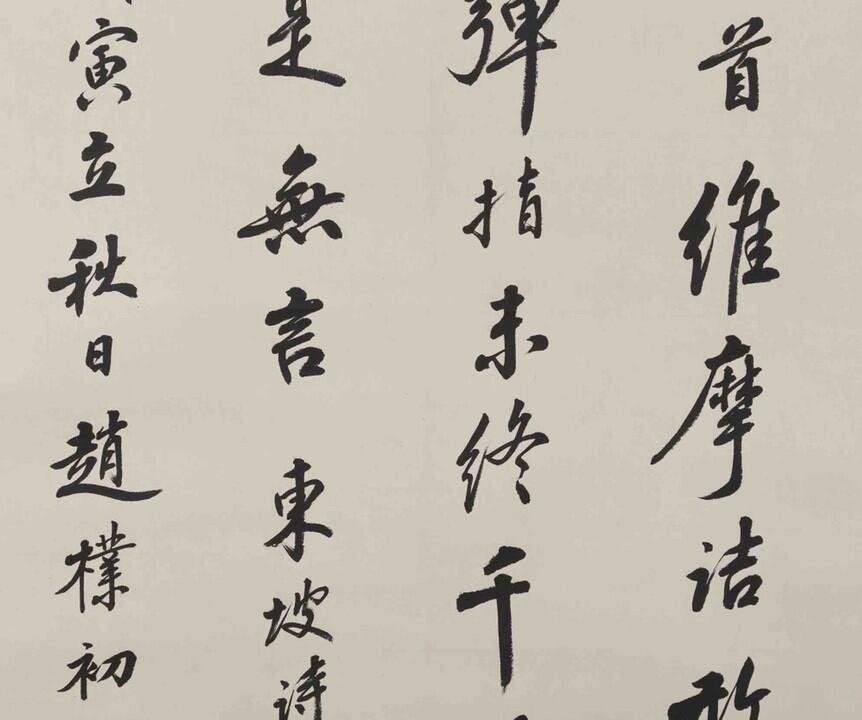 首維摩詰敢
彈指未終千
是無言 東坡詩
寅立秋日趙樸初